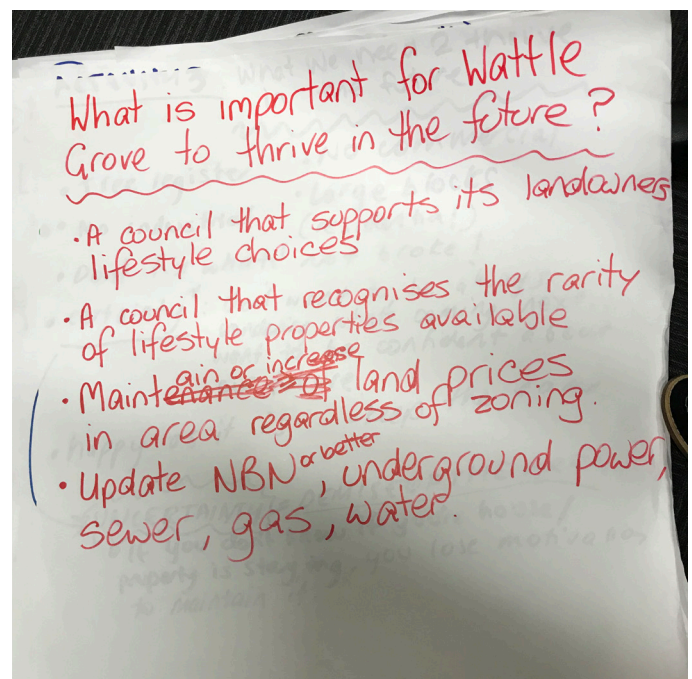 What is important for Wattle
Grove to thrive in the future?
• A council that supports its landowners
lifestyle choices
• A council that recognises the rarity
of lifestyle properties available
• Maintain or increase land prices
in area regardless of zoning.
• Update NBN or better, underground power,
sewer, gas, water.
property is staying, you lose motivation
to maintain it